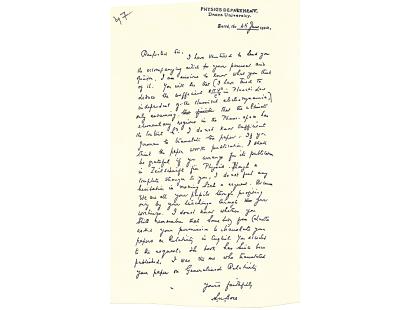 PHYSICS DEPARTMENT,
Dacca University.
Dated, the 4th June 1924.
Respected Sir, I have ventured to send you
the accompanying article for your perusal and
opinion. I am anxious to know what you think
of it. You will see that I have tried to
deduce the coefficient in Planck's law
independent of the classical electrodynamics,
only assuming that the ultimate
elementary regions in the Phase-space has
the content h³. I do not know sufficient
German to translate the paper. If you
think the paper worth publication, I shall
be grateful if you arrange for its publication
in Zeitschrift für Physik. Though a
complete stranger to you, I do not feel any
hesitation in making such a request. Because
we are all your pupils though profiting
only by your teachings through your
writings. I do not know whether you
still remember that somebody from Calcutta
asked your permission to translate your
papers on Relativity in English. You acceded
to the request. The book has since been
published. I was the one who translated
your paper on Generalised Relativity.
Yours faithfully,
S. N. Bose